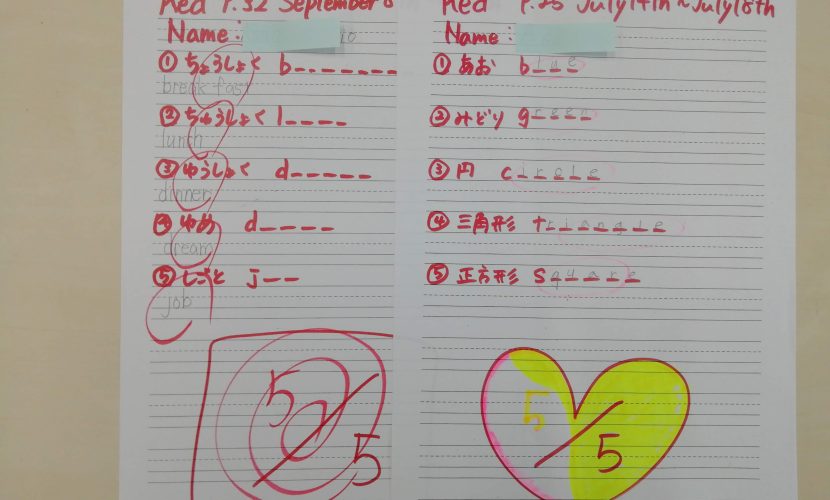 Red P.32 September
Name:
① ちょうしょく b_______
breakfast
② ちゅうしょく l____
lunch
③ ゆうしょく d_____
dinner
④ ゆめ d____
dream
⑤ しごと j__
job
5/5
Red P.25 July 14th~July 18th
Name:
① あお blue
② みどり green
③ 円 circle
④ 三角形 triangle
⑤ 正方形 square
5/5